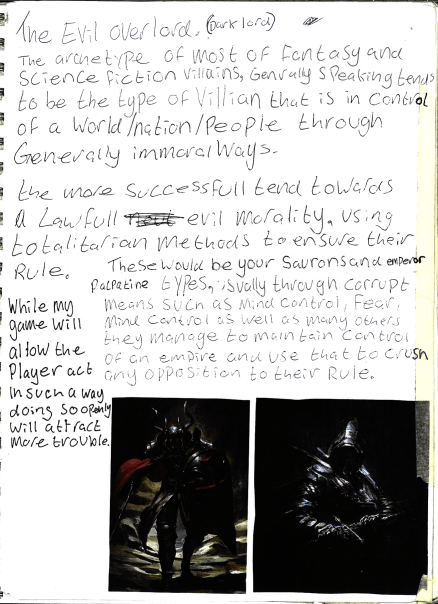 The Evil overlord. (Dark lord)
The archetype of most of fantasy and
science fiction villains, Genrally speaking tends
to be the type of Villian that is in control
of a World/nation/People through
Generally immoral ways.
the more successfull tend towards
a Lawfull evil morality. using
totalitarian methods to ensure their
Rule. These would be your Saurons and emperor
Palpatine types, usually through corrupt
means such as mind control, Fear,
Mind control as well as many others
they manage to maintain control
of an empire and use that to crush
any opposition to their Rule.
While my
game will
allow the
Player act
in such a way
doing so openly
will attract
more trouble.